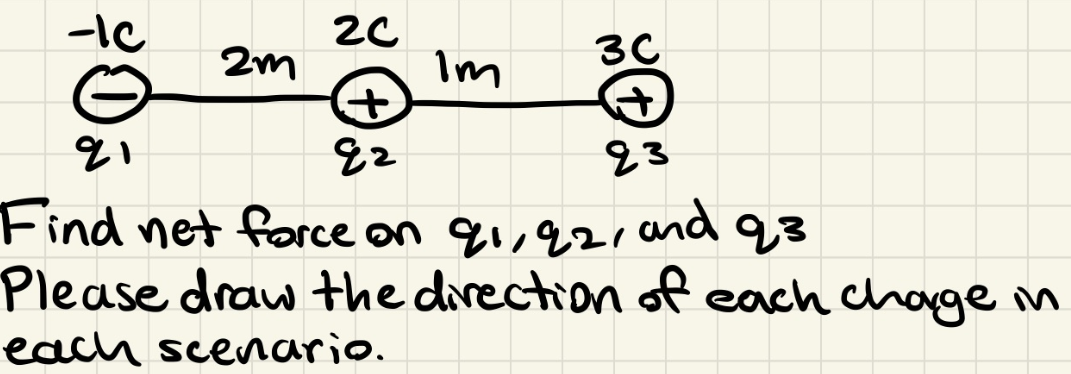 -1C 2m 2C 1m 3C
− + +
q1 q2 q3
Find net force on q1, q2, and q3
Please draw the direction of each charge in
each scenario.